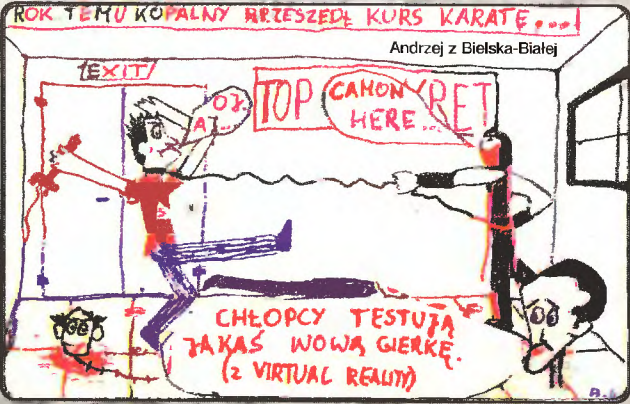 ROK TEMU KOPALNY PRZESZEDŁ KURS KARATE...!
Andrzej z Bielska-Białej
EXIT
OJ.
A
TOP
RET
CAMON
HERE...
CHŁOPCY TESTUJĄ
JAKĄŚ NOWĄ GIERKĘ.
(Z VIRTUAL REALITY)